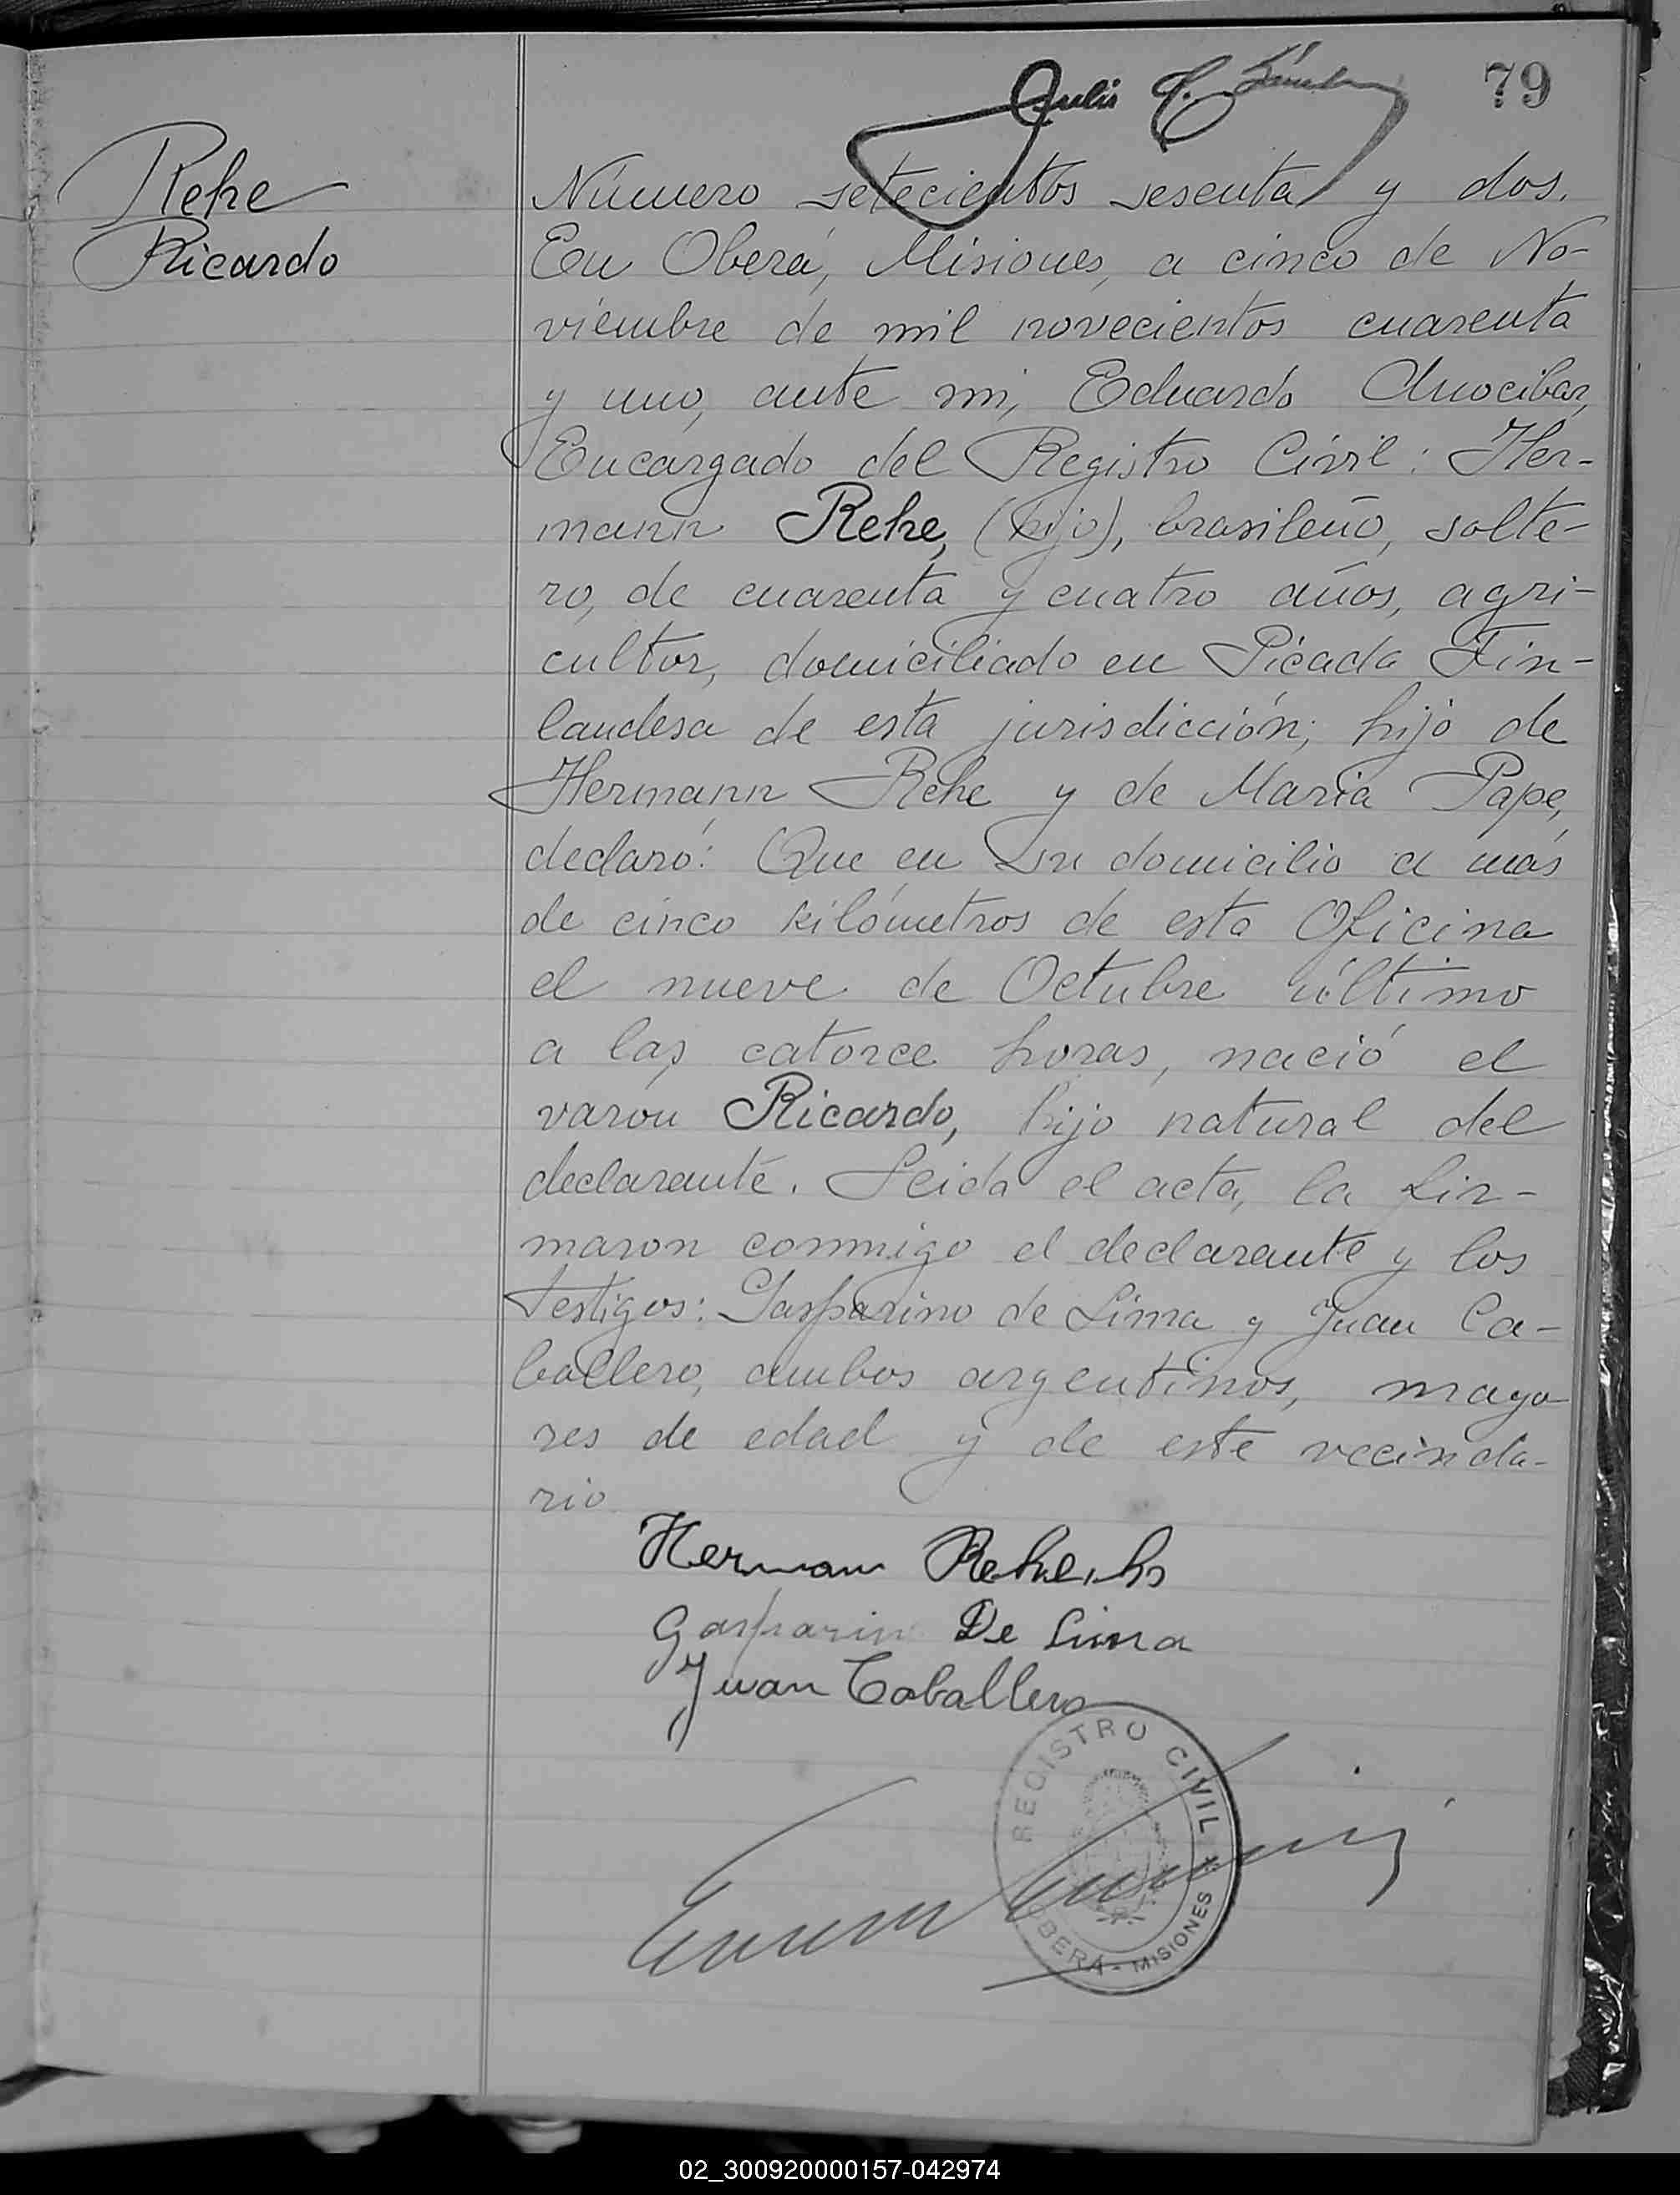 79
Julio
Rehe
Ricardo
Número setecientos sesenta y dos.
En Oberá, Misiones, a cinco de No-
viembre de mil novecientos cuarenta
y uno, ante mi, Eduardo Anocibar,
Encargado del Registro Civil: Her-
mann Rehe, (hijo), brasileño, solte-
ro, de cuarenta y cuatro años, agri-
cultor, domiciliado en Picada Fin-
landesa de esta jurisdicción; hijo de
Hermann Rehe y de Maria Pape,
declaró: Que en su domicilio a más
de cinco kilómetros de esta Oficina
el nueve de Octubre último
a las catorce horas, nació el
varon Ricardo, hijo natural del
declarante. Leida el acta, la fir-
maron conmigo el declarante y los
testigos: Gasparino de Lima y Juan Ca-
ballero, ambos argentinos, mayo
res de edad y de este vecinda-
rio
Hermann Rehe, ho
Gasparino De Lima
Juan Caballero
REGISTRO CIVIL
OBERÁ - MISIONES
02_300920000157-042974